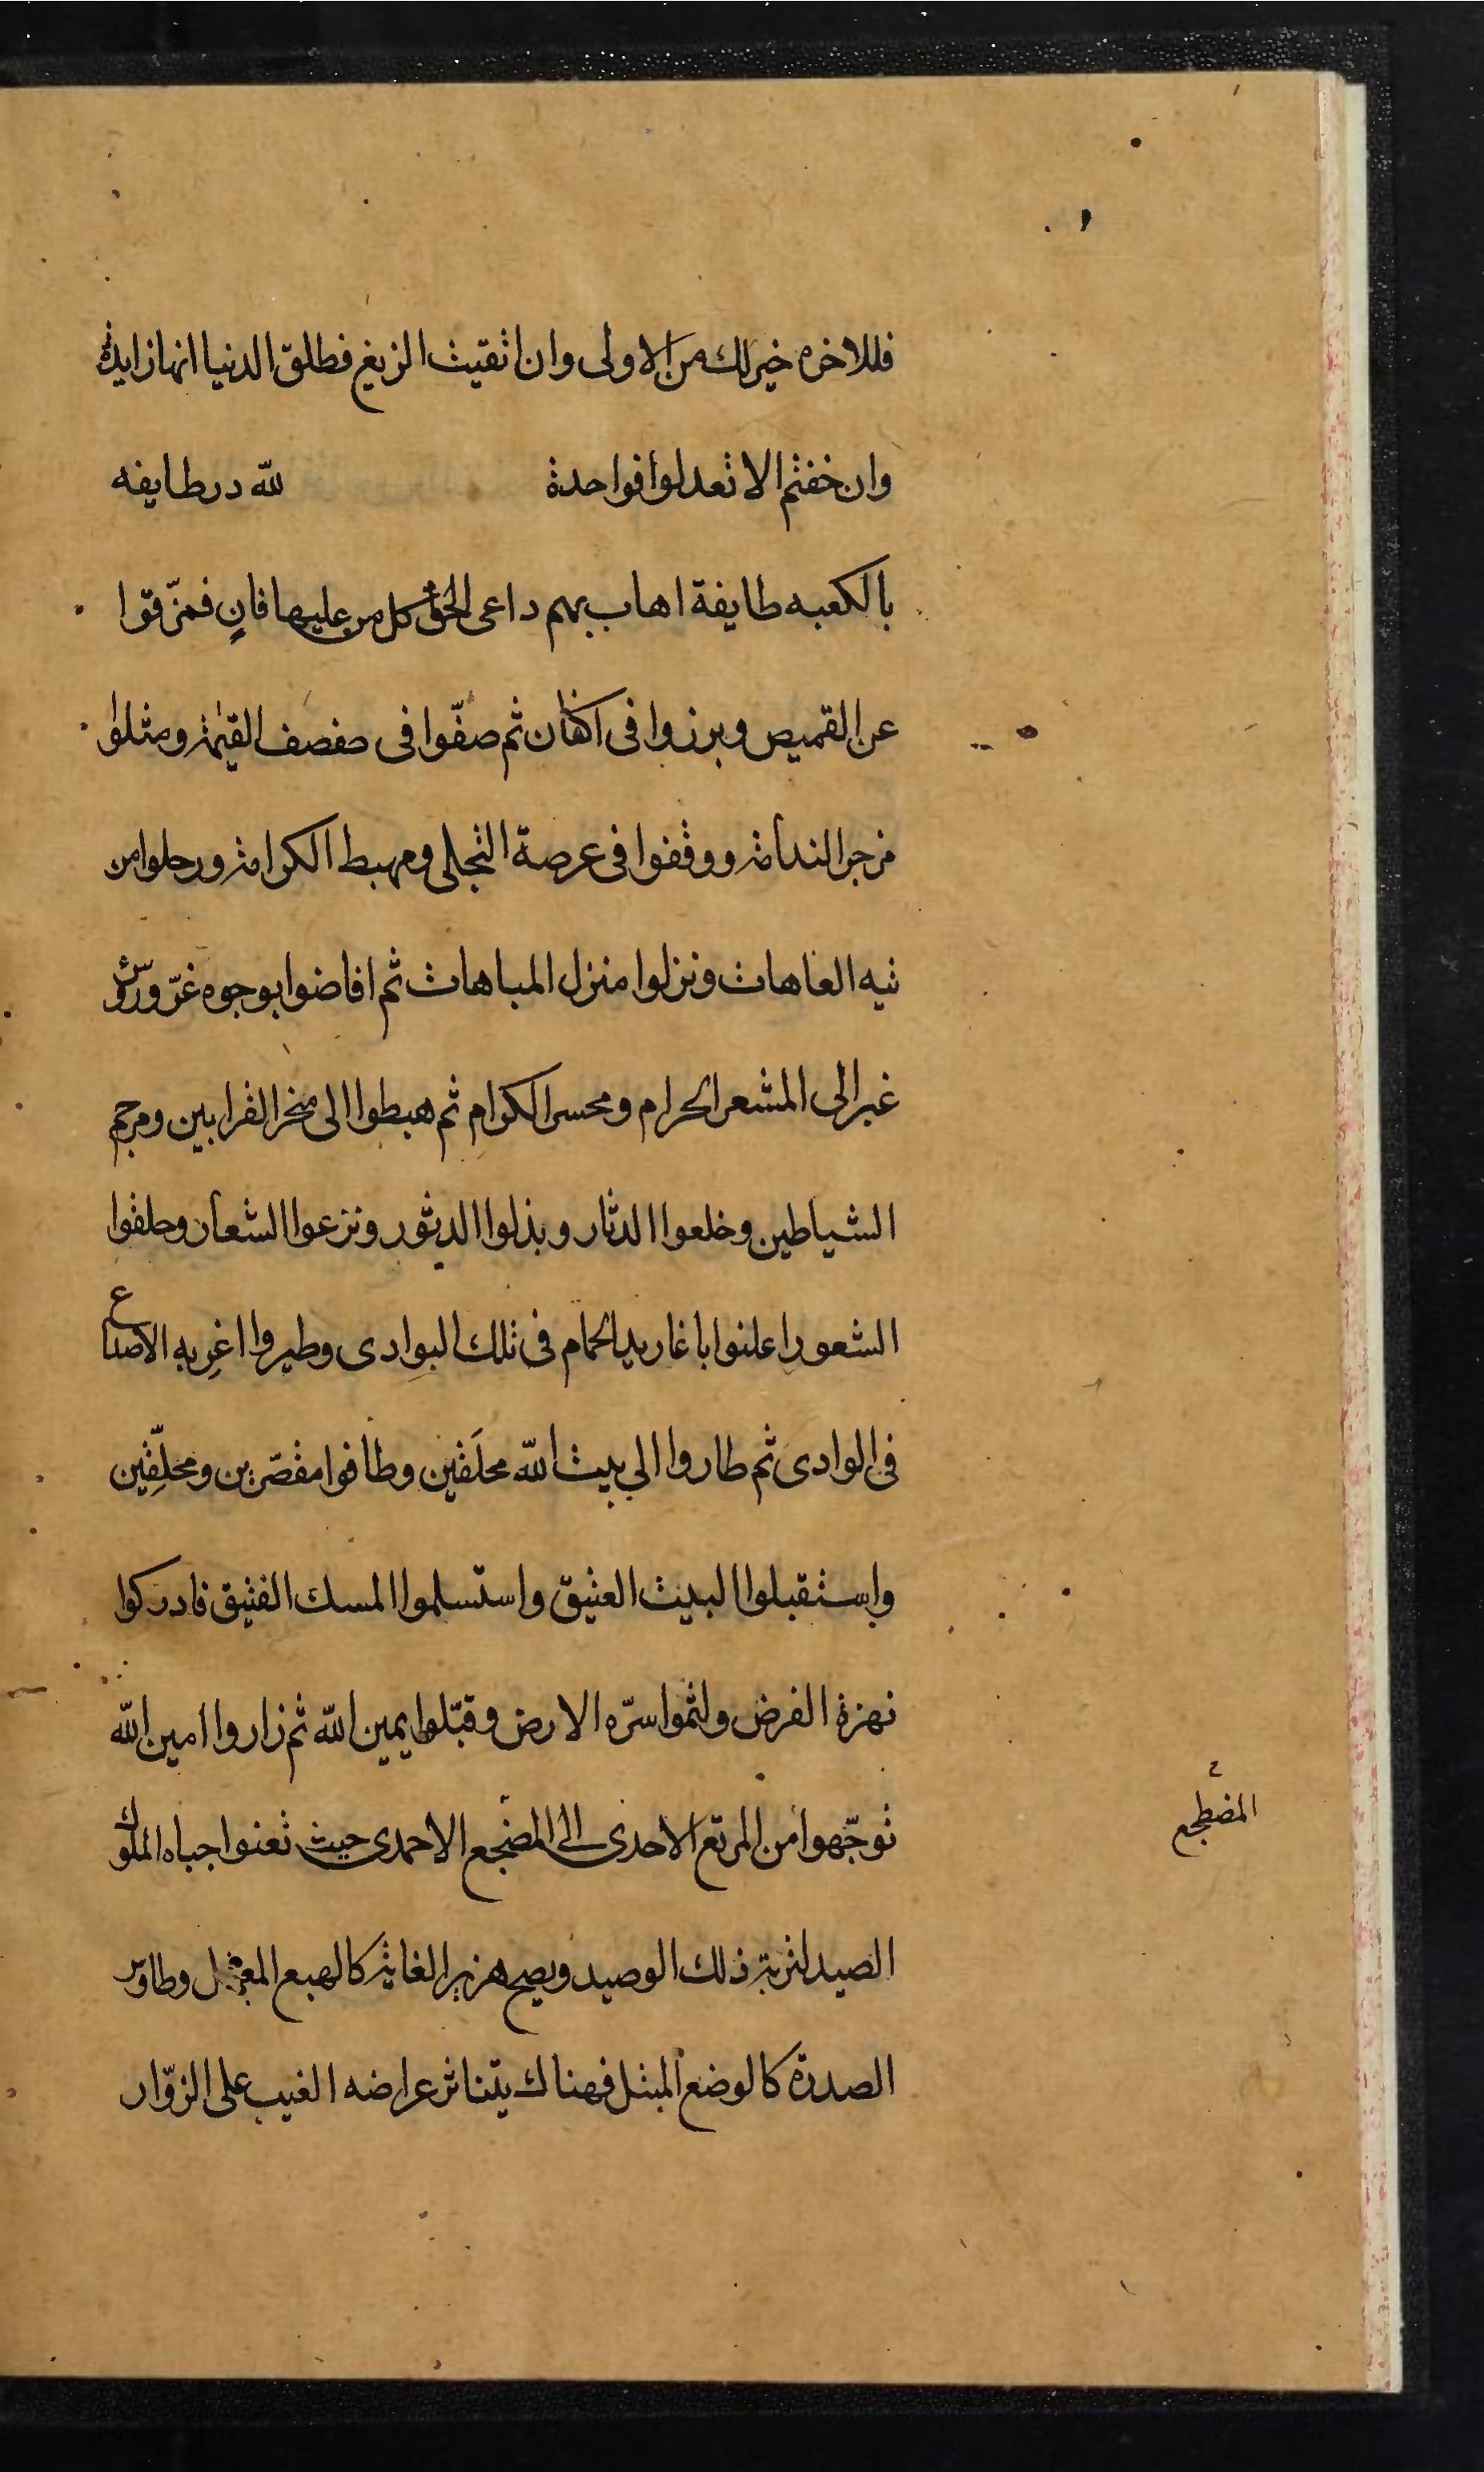 فللاخره خير لك من الاولى وان اتقيت الزيغ فطلق الدنيا انها زايدة
وان خفتم الا تعدلوا فواحدة لله در طايفه
بالكعبه طايفة اهاب بهم داعى الحق كل من عليها فانٍ فمزّقوا
عن القميص وبرزوا فى اكفان ثم صفّوا فى صفصف القيٰمة ومثلوا
الندامة ووقفوا فى عرصة التجلى ومهبط الكرامة ورحلوا من
تيه العاهات ونزلوا منزل المباهات ثم افاضوا بوجوه غرّ ورؤس
غبر الى المشعر الحرام ومحسر الكرام ثم هبطوا الى منحر القرابين ومرجم
الشياطين وخلعوا الدثار وبذلوا الدثور ونزعوا الشعار وحلقوا
الشعور اعلنوا باغاريد الحمام فى تلك البوادى وطيروا اغربه الاصداع
فى الوادى ثم طاروا الي بيت الله محلّقين وطافوا مقصّرين ومحلّقين
واستقبلوا البيت العتيق واستسلموا المسك الفتيق فادركوا
نهزة الفرض ولثموا سرّه الارض وقبّلوا يمين الله ثم زاروا امين الله
توجّهوا من المرتع الاحدى الى المضجع الاحمدى حيث تعنوا جباه الملوك
المضطجع
الصيد لتربة ذلك الوصيد ويصح هزبر الغابة كالهبع وطاوس
الصدرة كالوضع المبتل فهناك يتناثر عراضه الغيب على الزوّار